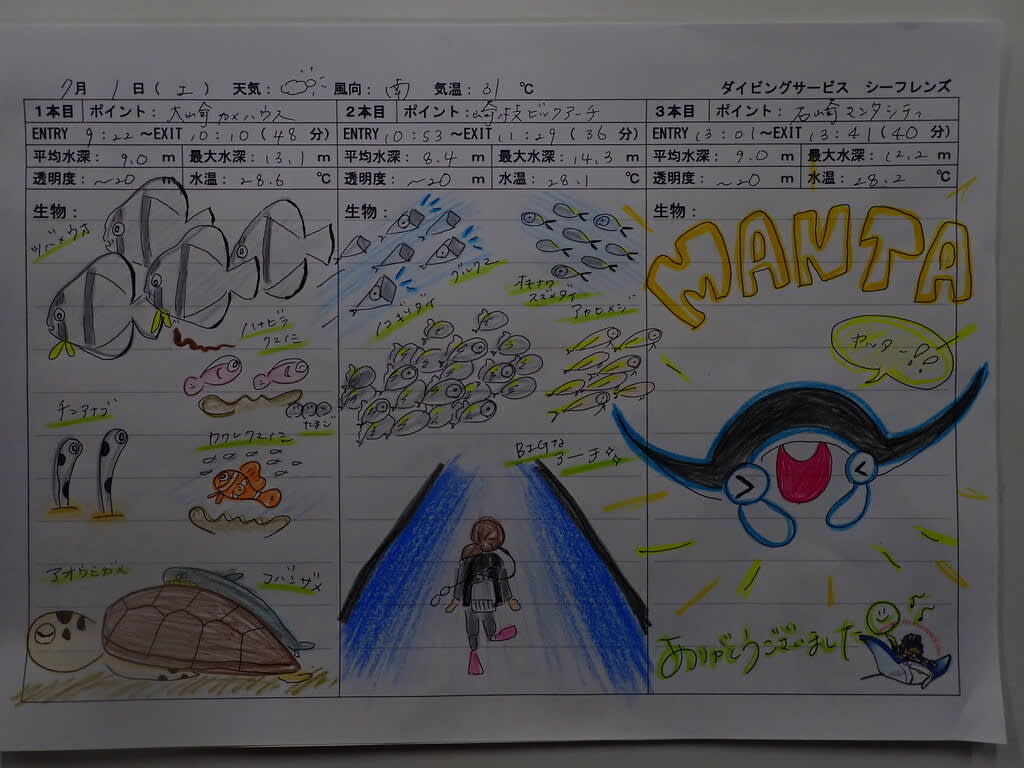 7月 1日(土) 天気: 風向: 南 気温: 31 ℃ ダイビングサービス シーフレンズ
1本目 ポイント: 大崎カメハウス
ENTRY 9:22 ~EXIT 10:10 (48 分)
平均水深: 9.0 m 最大水深: 13.1 m
透明度: ~20 m 水温: 28.6 ℃
生物:
ツバメウオ
ハナビラ
クマノミ
チンアナゴ
たまご
カクレクマノミ
アオウミガメ
コバンザメ
2本目 ポイント: 崎枝ビックアーチ
ENTRY 10:53 ~EXIT 11:29 (36 分)
平均水深: 8.4 m 最大水深: 14.3 m
透明度: ~20 m 水温: 28.1 ℃
生物:
グルクマ
オキナワ
スズメダイ
ノコギリダイ
アカヒメジ
BIGな
アーチ
3本目 ポイント: 石崎マンタシティ
ENTRY 13:01 ~EXIT 13:41 (40 分)
平均水深: 9.0 m 最大水深: 12.2 m
透明度: ~20 m 水温: 28.2 ℃
生物:
MANTA
ヤッター!!
ありがとうございました